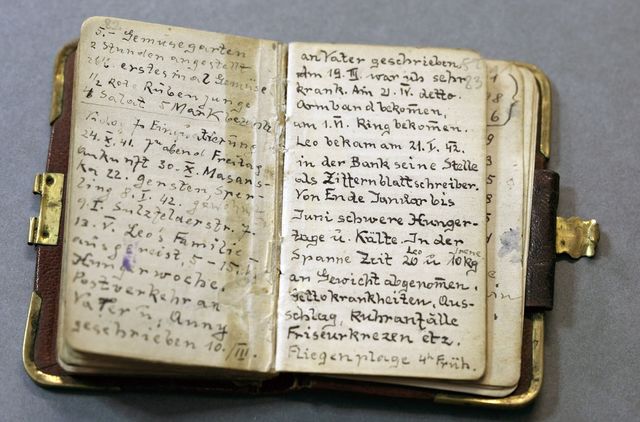 5.- Gemüsegarten
2 Stunden angestellt
erstesmal Gemüse
1/2 rote Rüben junge
Salat 5 Mark
Einwaggonierung
24. X. 41. abend Freitag
Ankunft 30. X. Masars-
ka 22. Gersten Sper-
ling 8. I. 42.
9. I. Sulzfelderstr. 7.
13. V. Leo's Familie
ausgereist, 5-15. V.
Hungerwoche.
Postverkehr an
Vater u. Anny
geschrieben 10./III.
an Vater geschrieben
Am 19. III. war ich sehr
krank. Am 21. IV. detto.
Armband bekommen,
am 1. VI. Ring bekommen.
Leo bekam am 21. I. 42.
in der Bank seine Stelle
als Zifternblattschreiber.
Von Ende Januar bis
Juni schwere Hunger-
tage u. Kälte. In der
Spanne Zeit Leo 20 u Irene 10 kg
an Gewicht abgenomen.
Gettokrankheiten, Aus-
schlag, Ruhranfälle
Friseurkrezen etz.
Fliegenplage 4h Früh.